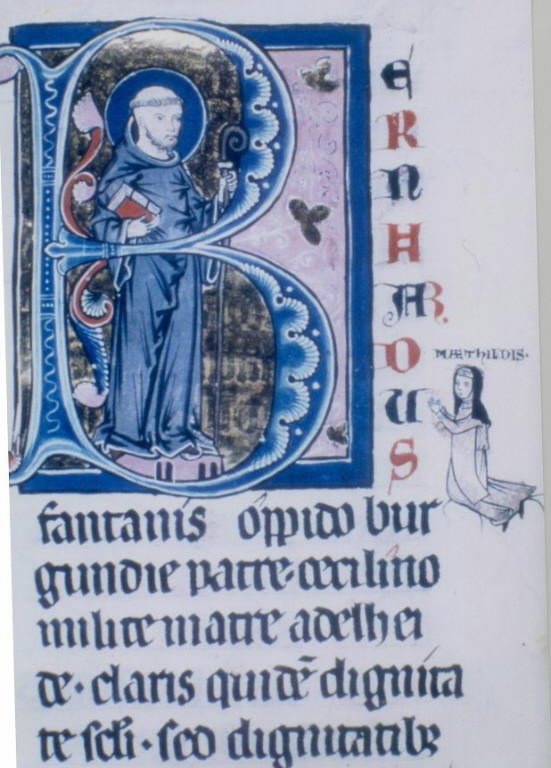 B
e
R
n
H
AR.
D
U
S
MÆTHILDIS.
fantanis oppido bur
gundie patre·cecilino
milite matre adelhei
de·claris quidē dignita
te scłi·sed dignitatibꝫ